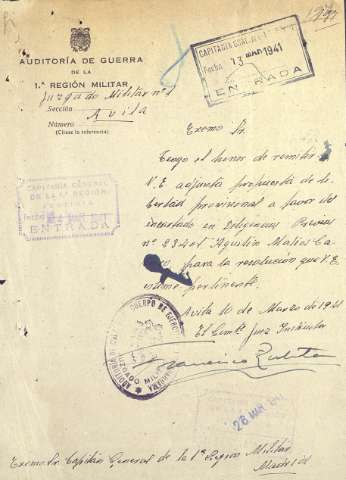 AUDITORÍA DE GUERRA
DE LA
1.ª REGIÓN MILITAR
Juzgado Militar nº 1
Sección
Avila
Número
(Cítese la referencia)
CAPITANIA GRAL.
Fecha 13 MAR 1941
ENTRADA
Excmo Sr.
Tengo el honor de remitir a
V.E. adjunta propuesta de li-
bertad provisional a favor del
encartado en Diligencias Previas
nº 83401 Agustín Matías Ca
para la resolución que V.E.
estime pertinente.
CAPITANIA GENERAL
DE LA 1ª REGION
Fecha
ENTRADA
Avila 10 de Marzo de 1941
El Comte. Juez Instructor
Francisco
CUERPO DE EJERCITO
AUDITORIA DE
JUZGADO MILITAR
26 MAR 1941
Excmo Sr. Capitán General de la 1ª Region Militar
Madrid